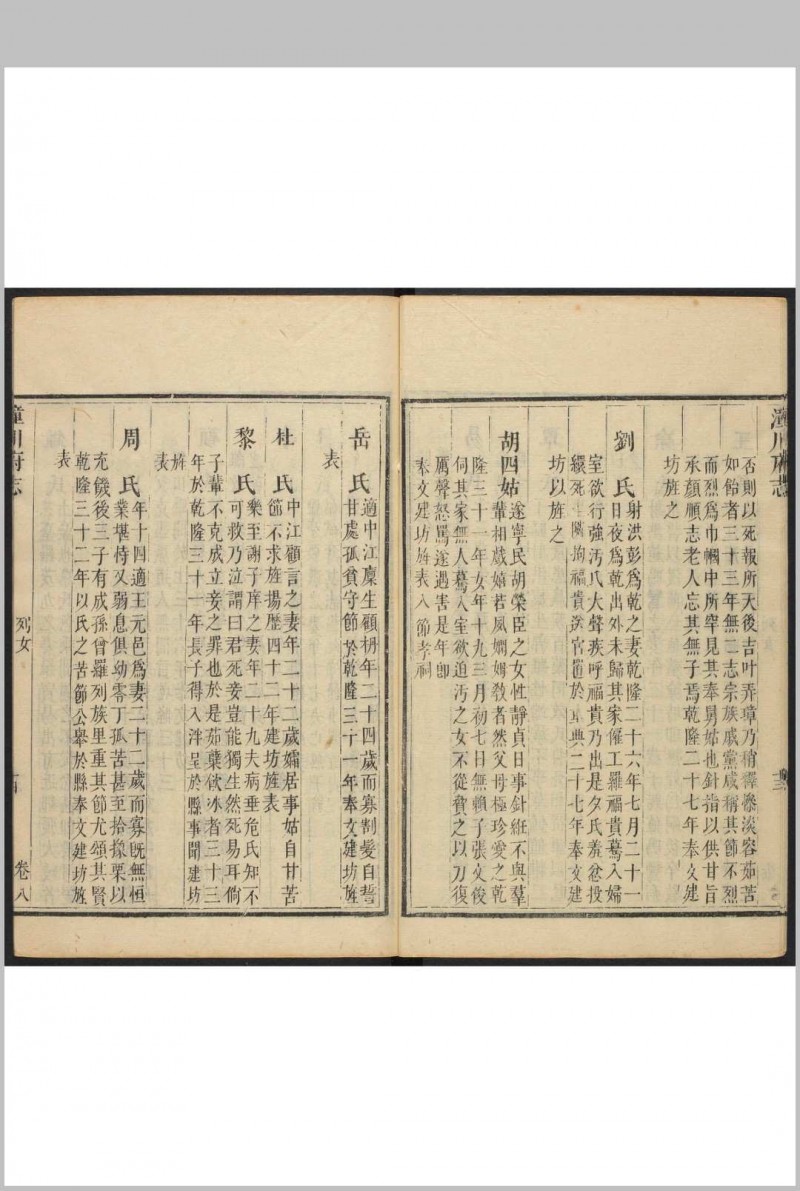 潼川府志
否則以死報所天後吉叶弄璋乃稍釋慘淡容茹苦
如飴者三十三年無二志宗族戚黨咸稱其節不烈
而烈爲巾幗中所罕見其奉舅姑也針指以供甘旨
承顏順志老人忘其無子焉乾隆二十七年奉文建
坊旌之
劉氏射洪彭爲乾之妻乾隆二十六年七月二十一
日夜爲乾出外未歸其家僱工羅福貴驀入婦
室欲行強汚氏大聲疾呼福貴乃出是夕氏羞忿投
繯死 福貴送官置於 典二十七年奉文建
坊以旌之
胡四姑遂寧民胡榮臣之女性靜貞日事針紝不與羣
輩相戲嬉若夙嫺姆敎者然父母極珍愛之乾
隆三十一年女年十九三月初七日無賴子張文俊
伺其家無人驀入室欲迫汚之女不從脅之以刀復
厲聲怒罵遂遇害是年卽
奉文建坊旌表入節孝祠
岳氏適中江廩生顧枬年二十四歲而寡割髮自誓
甘處孤貧守節於乾隆三十一年奉文建坊旌
表
杜氏中江顧言之妻年二十二歲孀居事姑自甘苦
節不求旌揚歷四十二年建坊旌表
黎氏樂至謝子庠之妻年二十九夫病垂危氏知不
可救乃泣謂曰君死妾豈能獨生然死易耳倘
子輩不克成立妾之罪也於是茹蘗飲冰者三十三
年於乾隆三十一年長子得入泮呈於縣事聞建坊
旌表
周氏年十四適王元邑爲妻二十二歲而寡旣無恒
業堪恃又弱息俱幼零丁孤苦甚至拾橡栗以
充饑後三子有成孫曾羅列族里重其節尤頌其賢
乾隆三十二年以氏之苦節公舉於縣奉文建坊旌
表
潼川府志
列女
卷八